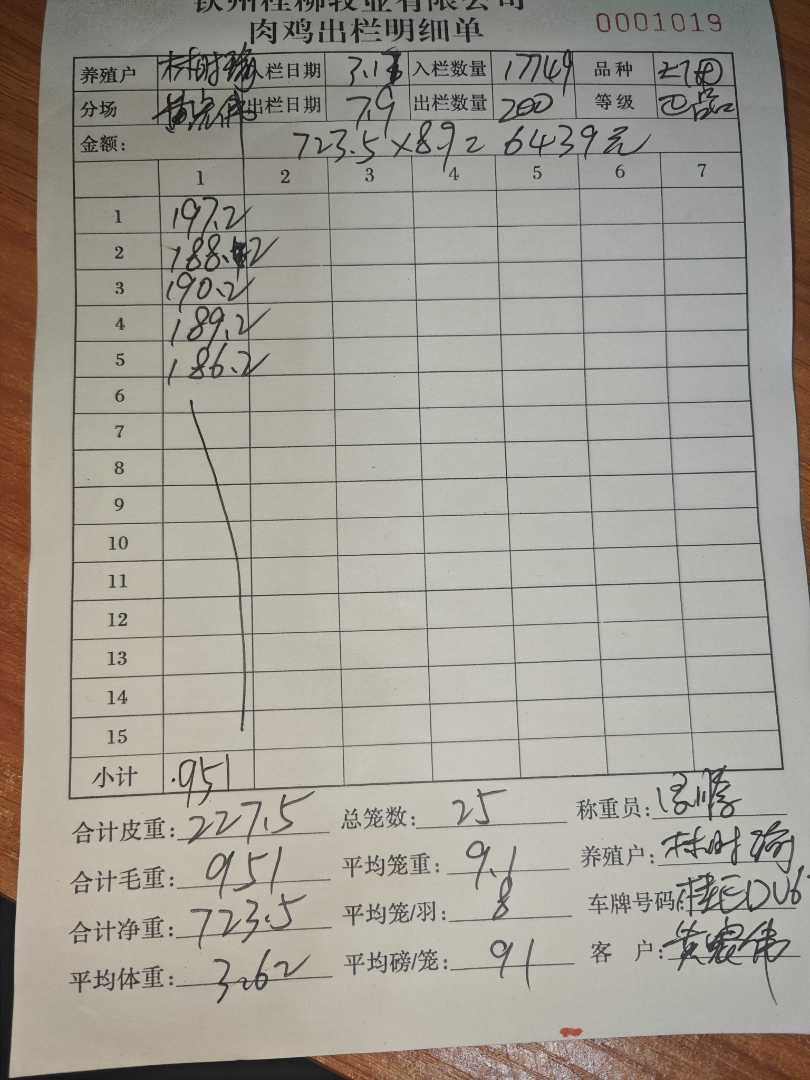 钦州桂柳牧业有限公司
肉鸡出栏明细单
0001019
养殖户 林时瑜 入栏日期 3.13 入栏数量 17749 品种
分场 出栏日期 7.9 出栏数量 200 等级
金额: 723.5×8.9= 6439元
1 2 3 4 5 6 7
1 197.2
2 188.2
3 190.2
4 189.2
5 186.2
6
7
8
9
10
11
12
13
14
15
小计 951
合计皮重: 227.5 总笼数: 25 称重员:
合计毛重: 951 平均笼重: 9.1 养殖户: 林时瑜
合计净重: 723.5 平均笼/羽: 8 车牌号码:
平均体重: 3.62 平均磅/笼: 91 客 户: